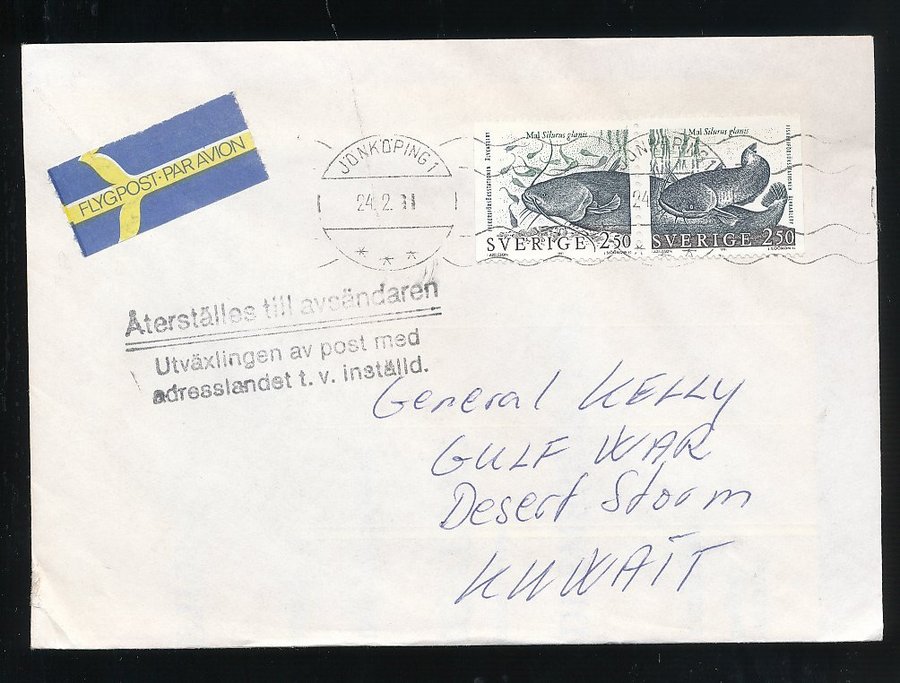 FLYGPOST·PAR AVION
JÖNKÖPING 1
24.2.91
* * *
Mal Silurus glanis
SVERIGE 250
Mal Silurus glanis
SVERIGE 250
JÖNKÖPING 1
24
Återställes till avsändaren
Utväxlingen av post med
adresslandet t. v. inställd.
General KELLY
GULF WAR
Desert Storm
KUWAIT